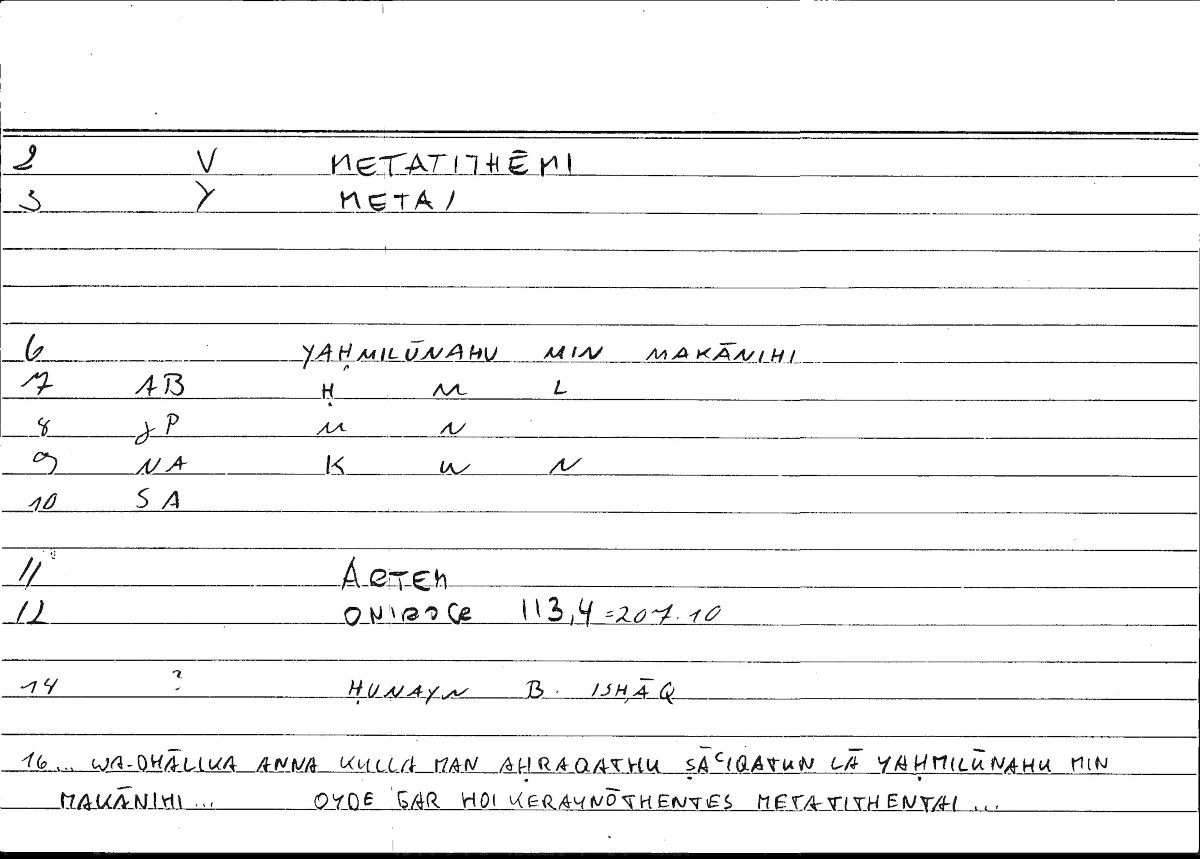 2 V METATITHĒMI
3 Y METAI
6 YAḤMILŪNAHU MIN MAKĀNIHI
7 AB Ḥ M L
8 JP M N
9 NA K W N
10 SA
11 ARTEM
12 ONIROCR 113,4 = 207.10
14 ? ḤUNAYN B. ISḤĀQ
16... WA-DHĀLIKA ANNA KULLA MAN AḤRAQATHU ṢĀCIQATUN LĀ YAḤMILŪNAHU MIN
MAKĀNIHI... OYDE GAR HOI KERAYNŌTHENTES METATITHENTAI...